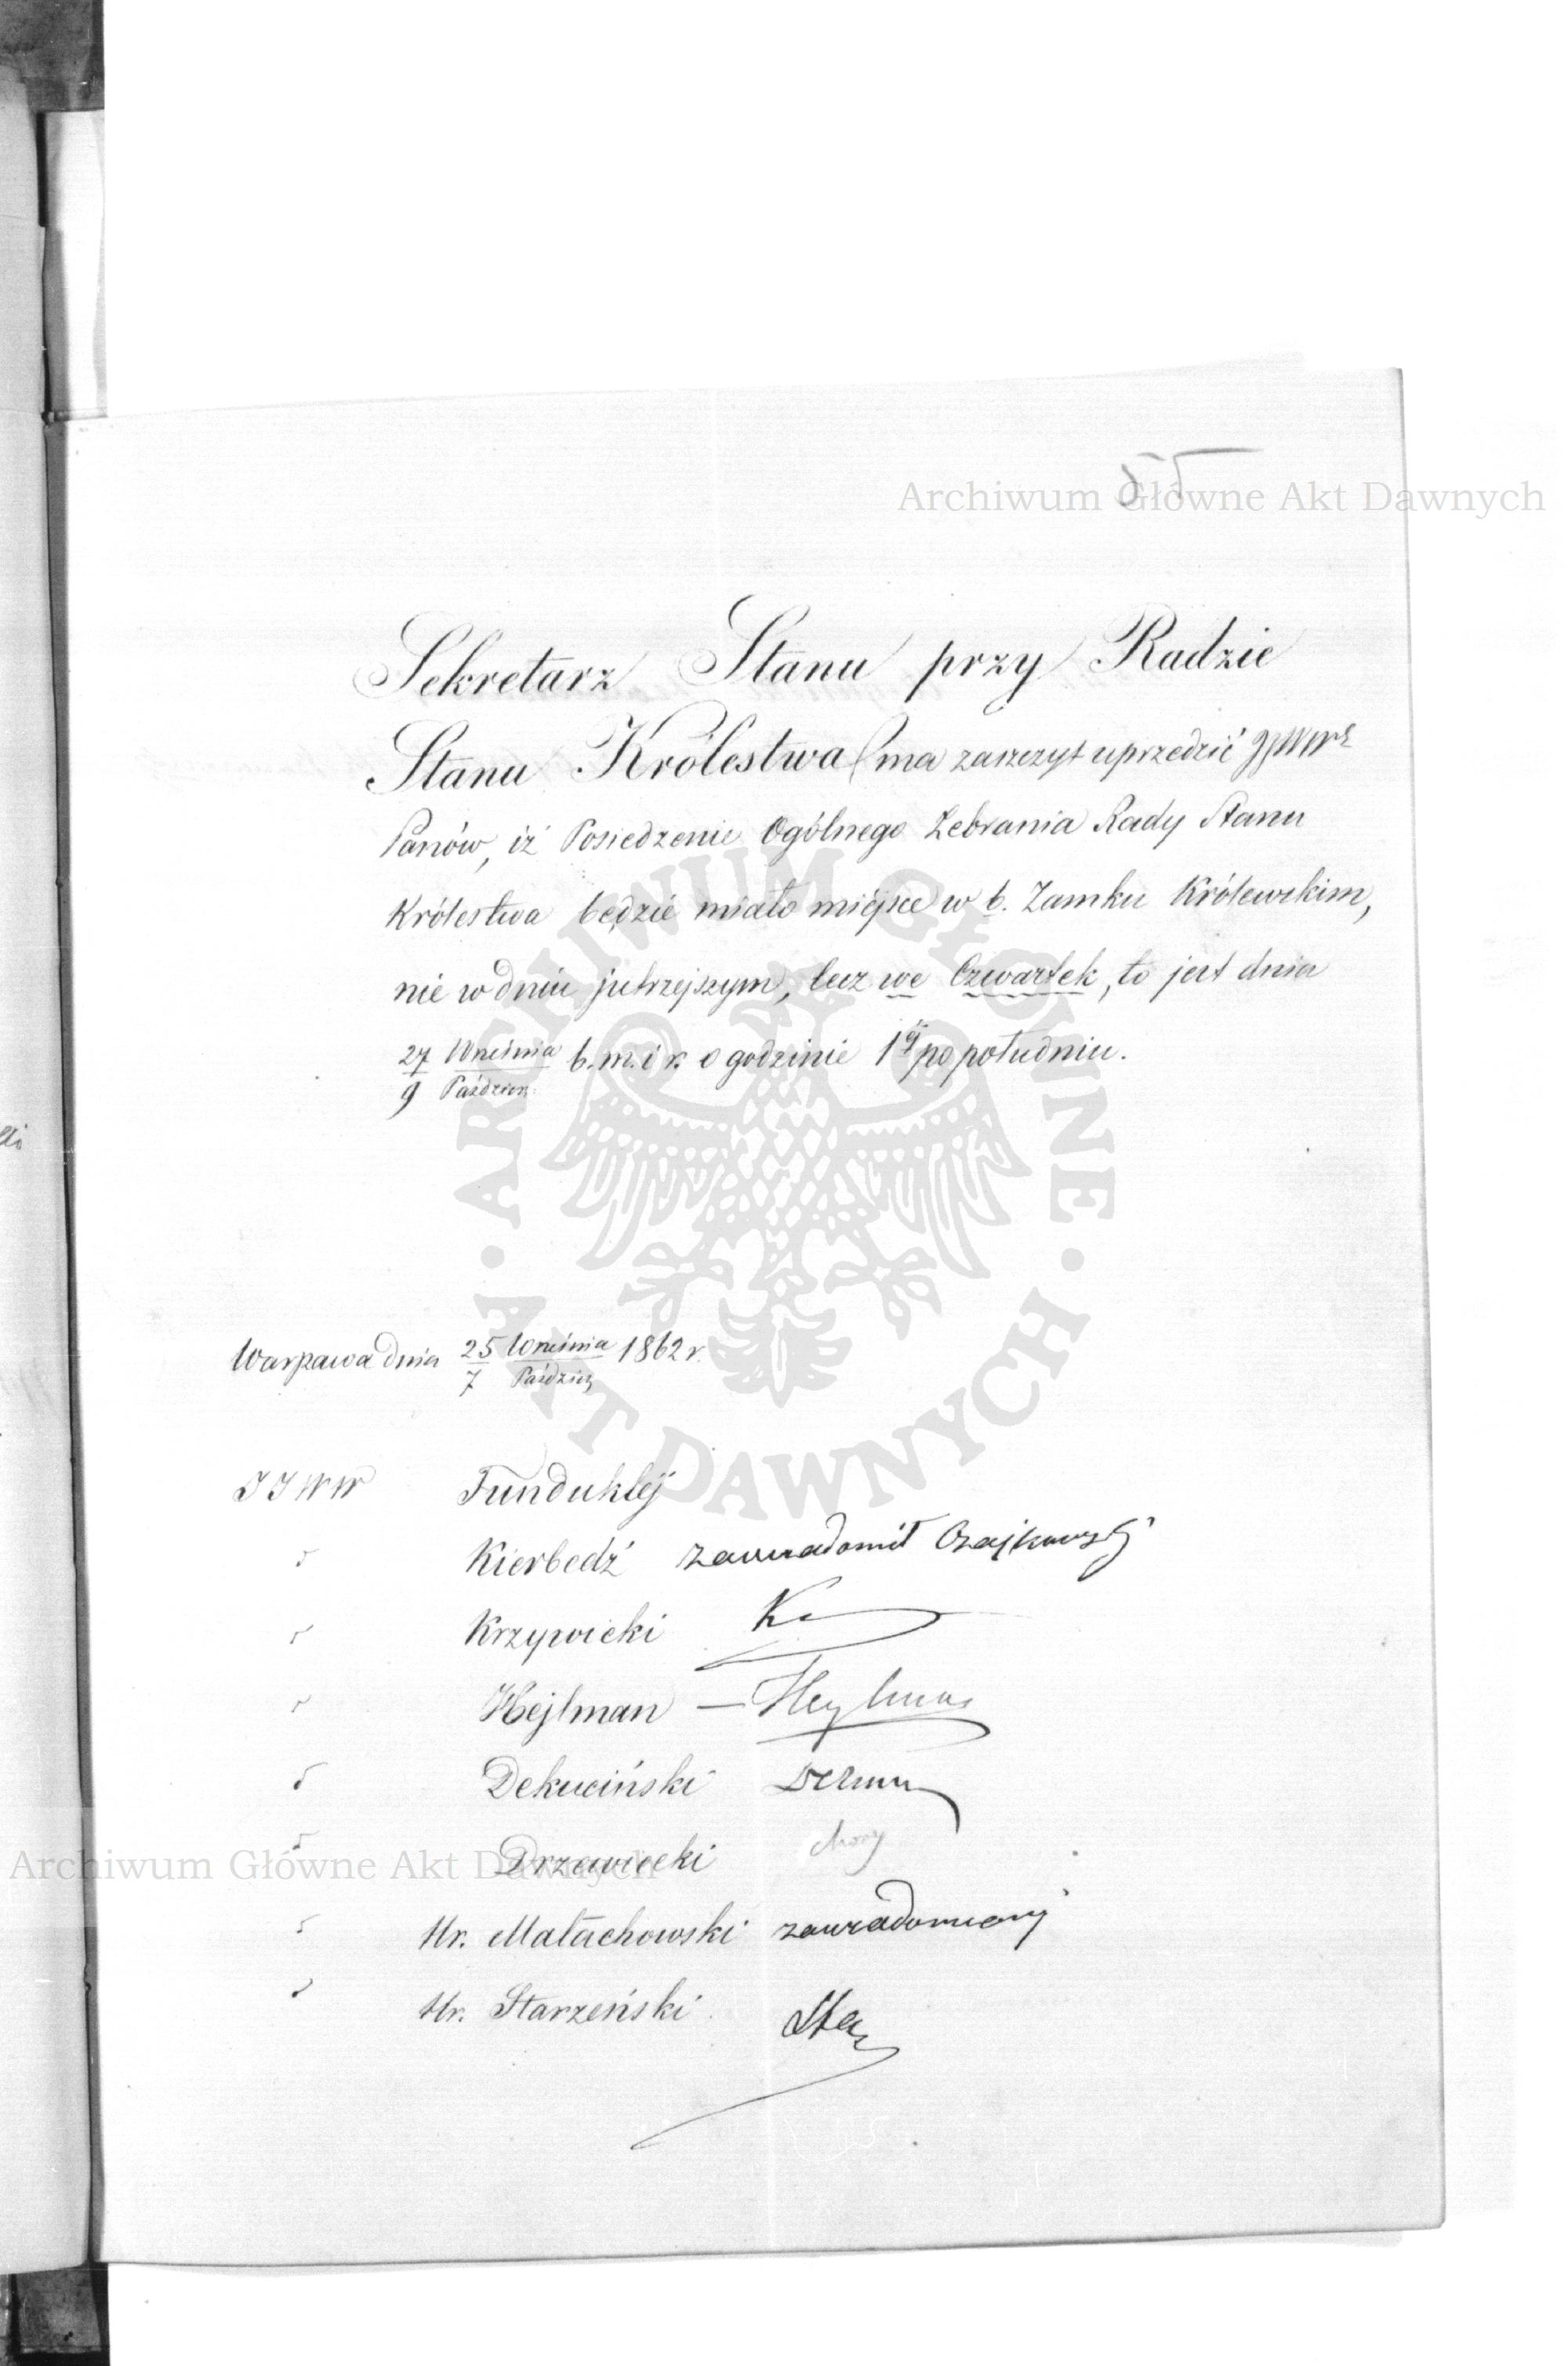 55
Archiwum Główne Akt Dawnych
Sekretarz Stanu przy Radzie
Stanu Królestwa ma zaszczyt uprzedzić JJWW
Panów, iż Posiedzenie Ogólnego Zebrania Rady Stanu
Królestwa będzie miało miéjsce w b. Zamku Królewskim,
nie w dniu jutrzejszym, lecz we Czwartek, to jest dnia
27 Września / 9 Paździer: b. m. i r. o godzinie 1éj po południu.
ARCHIWUM GŁÓWNE AKT DAWNYCH
Warszawa dnia 25 Września / 7 Paździer 1862 r.
JJWW Fundukléj
" Kierbedź zawiadomił Czajkowski
" Krzywicki K
" Hejlman — Heylman
" Dekuciński
" Drzewiecki chory
Archiwum Główne Akt Dawnych
" Hr. Małachowski zawiadomiony
" Hr. Starzeński Star